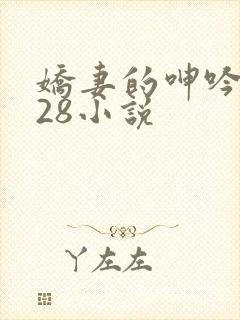 嬌妻的呻吟
28小說
丫左左